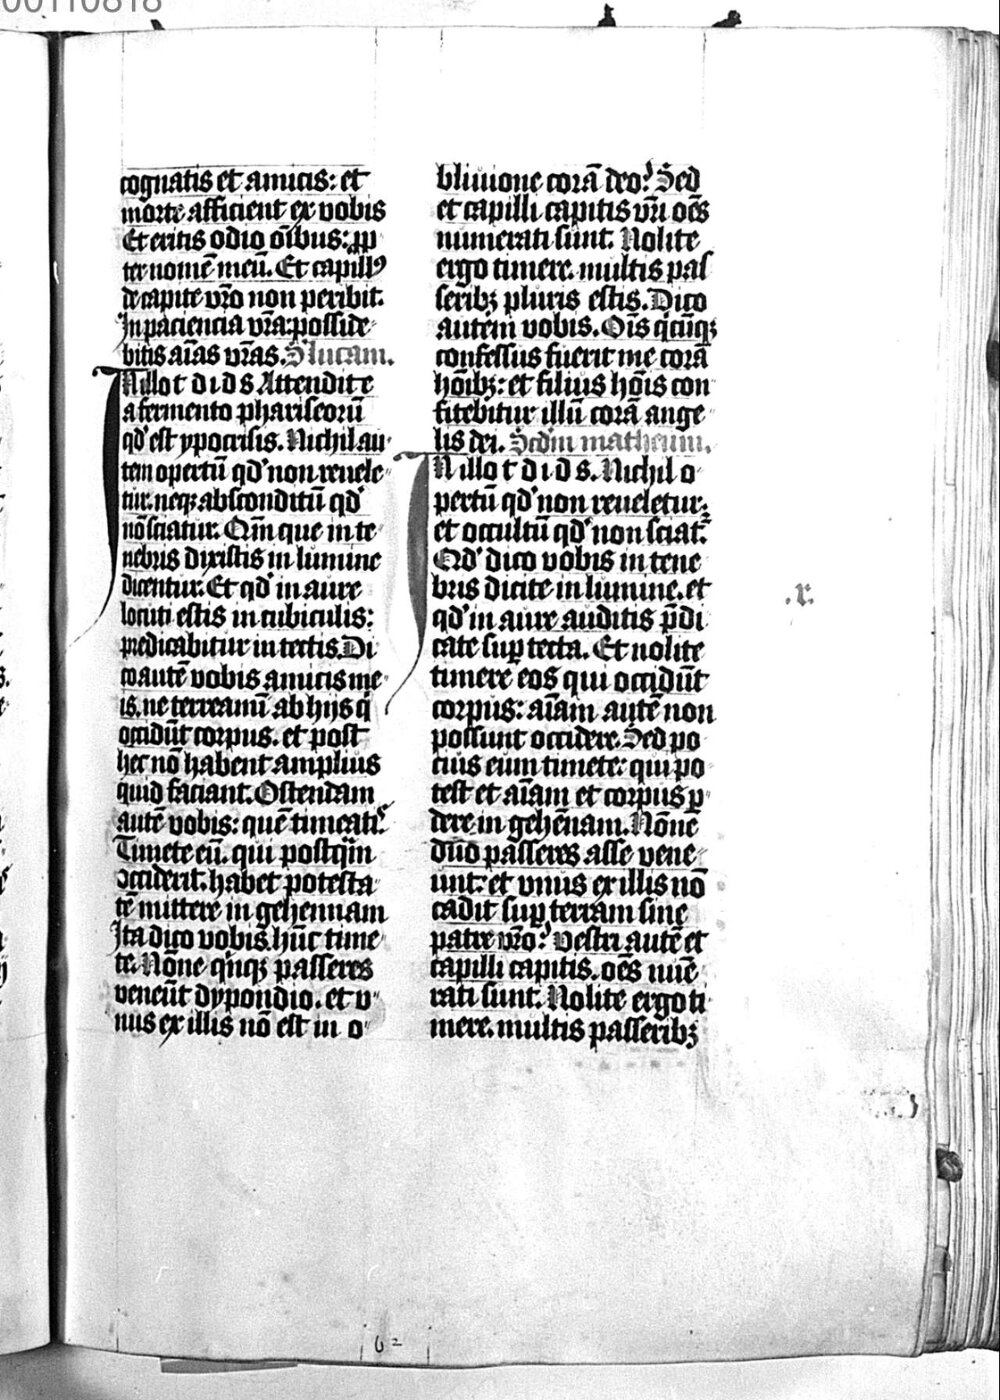 00110818
cognatis et amicis: et
morte afficient ex vobis
Et eritis odio oībus: ꝓp
ter nomē meū. Et capillꝰ
de capite vr̄o non peribit.
In paciencia vr̄a: posside
bitis aīas vr̄as. S' lucam.
In illo t d i d s Attendite
a fermento phariseorū
qd' est ypocrisis. Nichil au
tem opertū qd' non reuele
tur. neqꝫ absconditū qd'
nō sciatur. Qm̄ que in te
nebris dixistis in lumine
dicentur. Et qd' in aure
locuti estis in cubiculis:
predicabitur in tectis. Di
co autē vobis amicis me
is. ne terreamī ab hijs q̄
occidūt corpus. et post
hec nō habent amplius
quid faciant. Ostendam
autē vobis: quē timeatis.
Timete eū. qui postqm̄
occiderit. habet potesta
tē mittere in gehennam
Ita dico vobis hūc time
te. Nōne qnqꝫ passeres
veneūt dypondio. et v
nus ex illis nō est in o
bliuione corā deo? Sed
et capilli capitis vr̄i oēs
numerati sunt. Nolite
ergo timere. multis pas
seribꝫ pluris estis. Dico
autem vobis. Oīs qicūqꝫ
confessus fuerit me corā
hoībꝫ: et filius hoīs con
fitebitur illū corā ange
lis dei. Scdm matheum.
In illo t d i d s. Nichil o
pertū qd' non reueletur:
et occultū qd' non sciat̄.
Qd' dico vobis in tene
bris dicite in lumine. et
qd' in aure auditis p̄di
cate suꝑ tecta. Et nolite
timere eos qui occidūt
corpus: aīam autē non
possunt occidere. Sed po
cius eum timete: qui po
test et aīam et corpus ꝑ
dere in gehennam. Nōne
duo passeres asse vene
unt: et vnus ex illis nō
cadit suꝑ terram sine
patre vr̄o? vestri autē et
capilli capitis. oēs nūe
rati sunt. Nolite ergo ti
mere. multis passeribꝫ
.x.
62